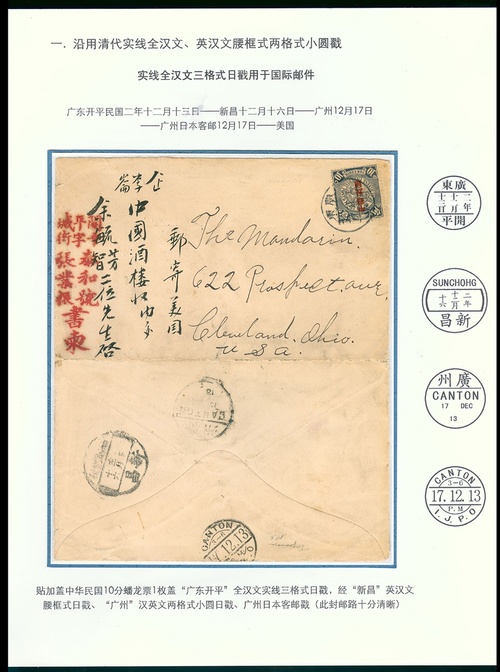 一. 沿用清代实线全汉文、英汉文腰框式两格式小圆戳
实线全汉文三格式日戳用于国际邮件
广东开平民国二年十二月十三日——新昌十二月十六日——广州12月17日
——广州日本客邮12月17日——美国
郵寄美國
中國酒楼收内交
余毓芳
智二位先生啓
義和號
書柬
The Mandarin.
622 Prospect ave.
Cleveland. Ohio.
U.S.a.
CANTON
昌新
CANTON
12.13
東廣
平開
SUNCHOHG
昌新
州廣
CANTON
17 DEC
13
CANTON
3-6
17.12.13
P.M
I.J.P.O
贴加盖中华民国10分蟠龙票1枚盖“广东开平”全汉文实线三格式日戳，经“新昌”英汉文
腰框式日戳、“广州”汉英文两格式小圆日戳、广州日本客邮戳（此封邮路十分清晰）